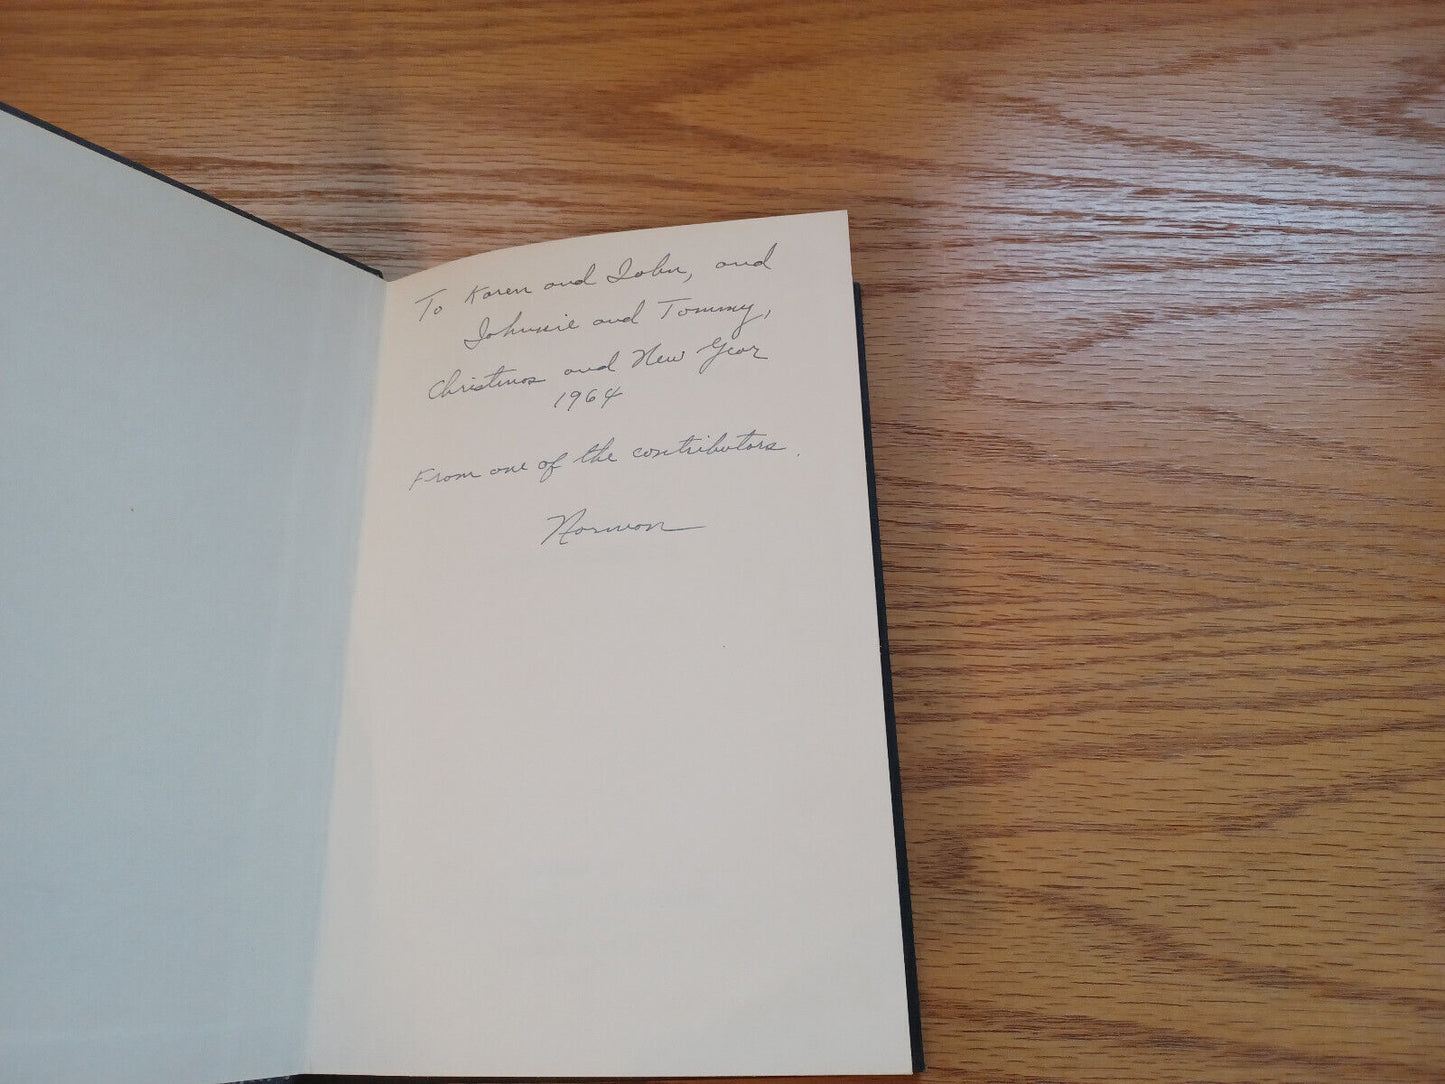 To Karen and John, and
Johnnie and Tommy,
Christmas and New Year
1964
From one of the contributors.
Norman